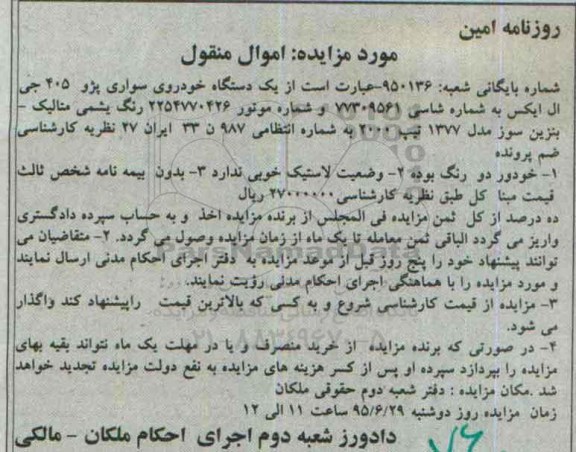 روزنامه امین
مورد مزایده: اموال منقول
شماره بایگانی شعبه: ۹۵۰۱۳۶-عبارت است از یک دستگاه خودروی سواری پژو ۴۰۵ جی
ال ایکس به شماره شاسی ۷۷۳۰۹۵۶۱ و شماره موتور ۲۲۵۴۷۷۰۴۲۶ رنگ یشمی متالیک -
بنزین سوز مدل ۱۳۷۷ تیپ ۲۰۰۰ به شماره انتظامی ۹۸۷ ن ۳۳ ایران ۲۷ نظریه کارشناسی
ضم پرونده
۱- خودور دو رنگ بوده ۲- وضعیت لاستیک خوبی ندارد ۳- بدون بیمه نامه شخص ثالث
قیمت مبنا کل طبق نظریه کارشناسی ۲۷۰۰۰۰۰۰ ریال
ده درصد از کل ثمن مزایده فی المجلس از برنده مزایده اخذ و به حساب سپرده دادگستری
واریز می گردد الباقی ثمن معامله تا یک ماه از زمان مزایده وصول می گردد. ۲- متقاضیان می
توانند پیشنهاد خود را پنج روز قبل از موعد مزایده به دفتر اجرای احکام مدنی ارسال نمایند
و مورد مزایده را با هماهنگی اجرای احکام مدنی رؤیت نمایند.
۳- مزایده از قیمت کارشناسی شروع و به کسی که بالاترین قیمت راپیشنهاد کند واگذار
می شود.
۴- در صورتی که برنده مزایده از خرید منصرف و یا در مهلت یک ماه نتواند بقیه بهای
مزایده را بپردازد سپرده او پس از کسر هزینه های مزایده به نفع دولت مزایده تجدید خواهد
شد .مکان مزایده : دفتر شعبه دوم حقوقی ملکان
زمان مزایده روز دوشنبه ۹۵/۶/۲۹ ساعت ۱۱ الی ۱۲
دادورز شعبه دوم اجرای احکام ملکان - مالکی